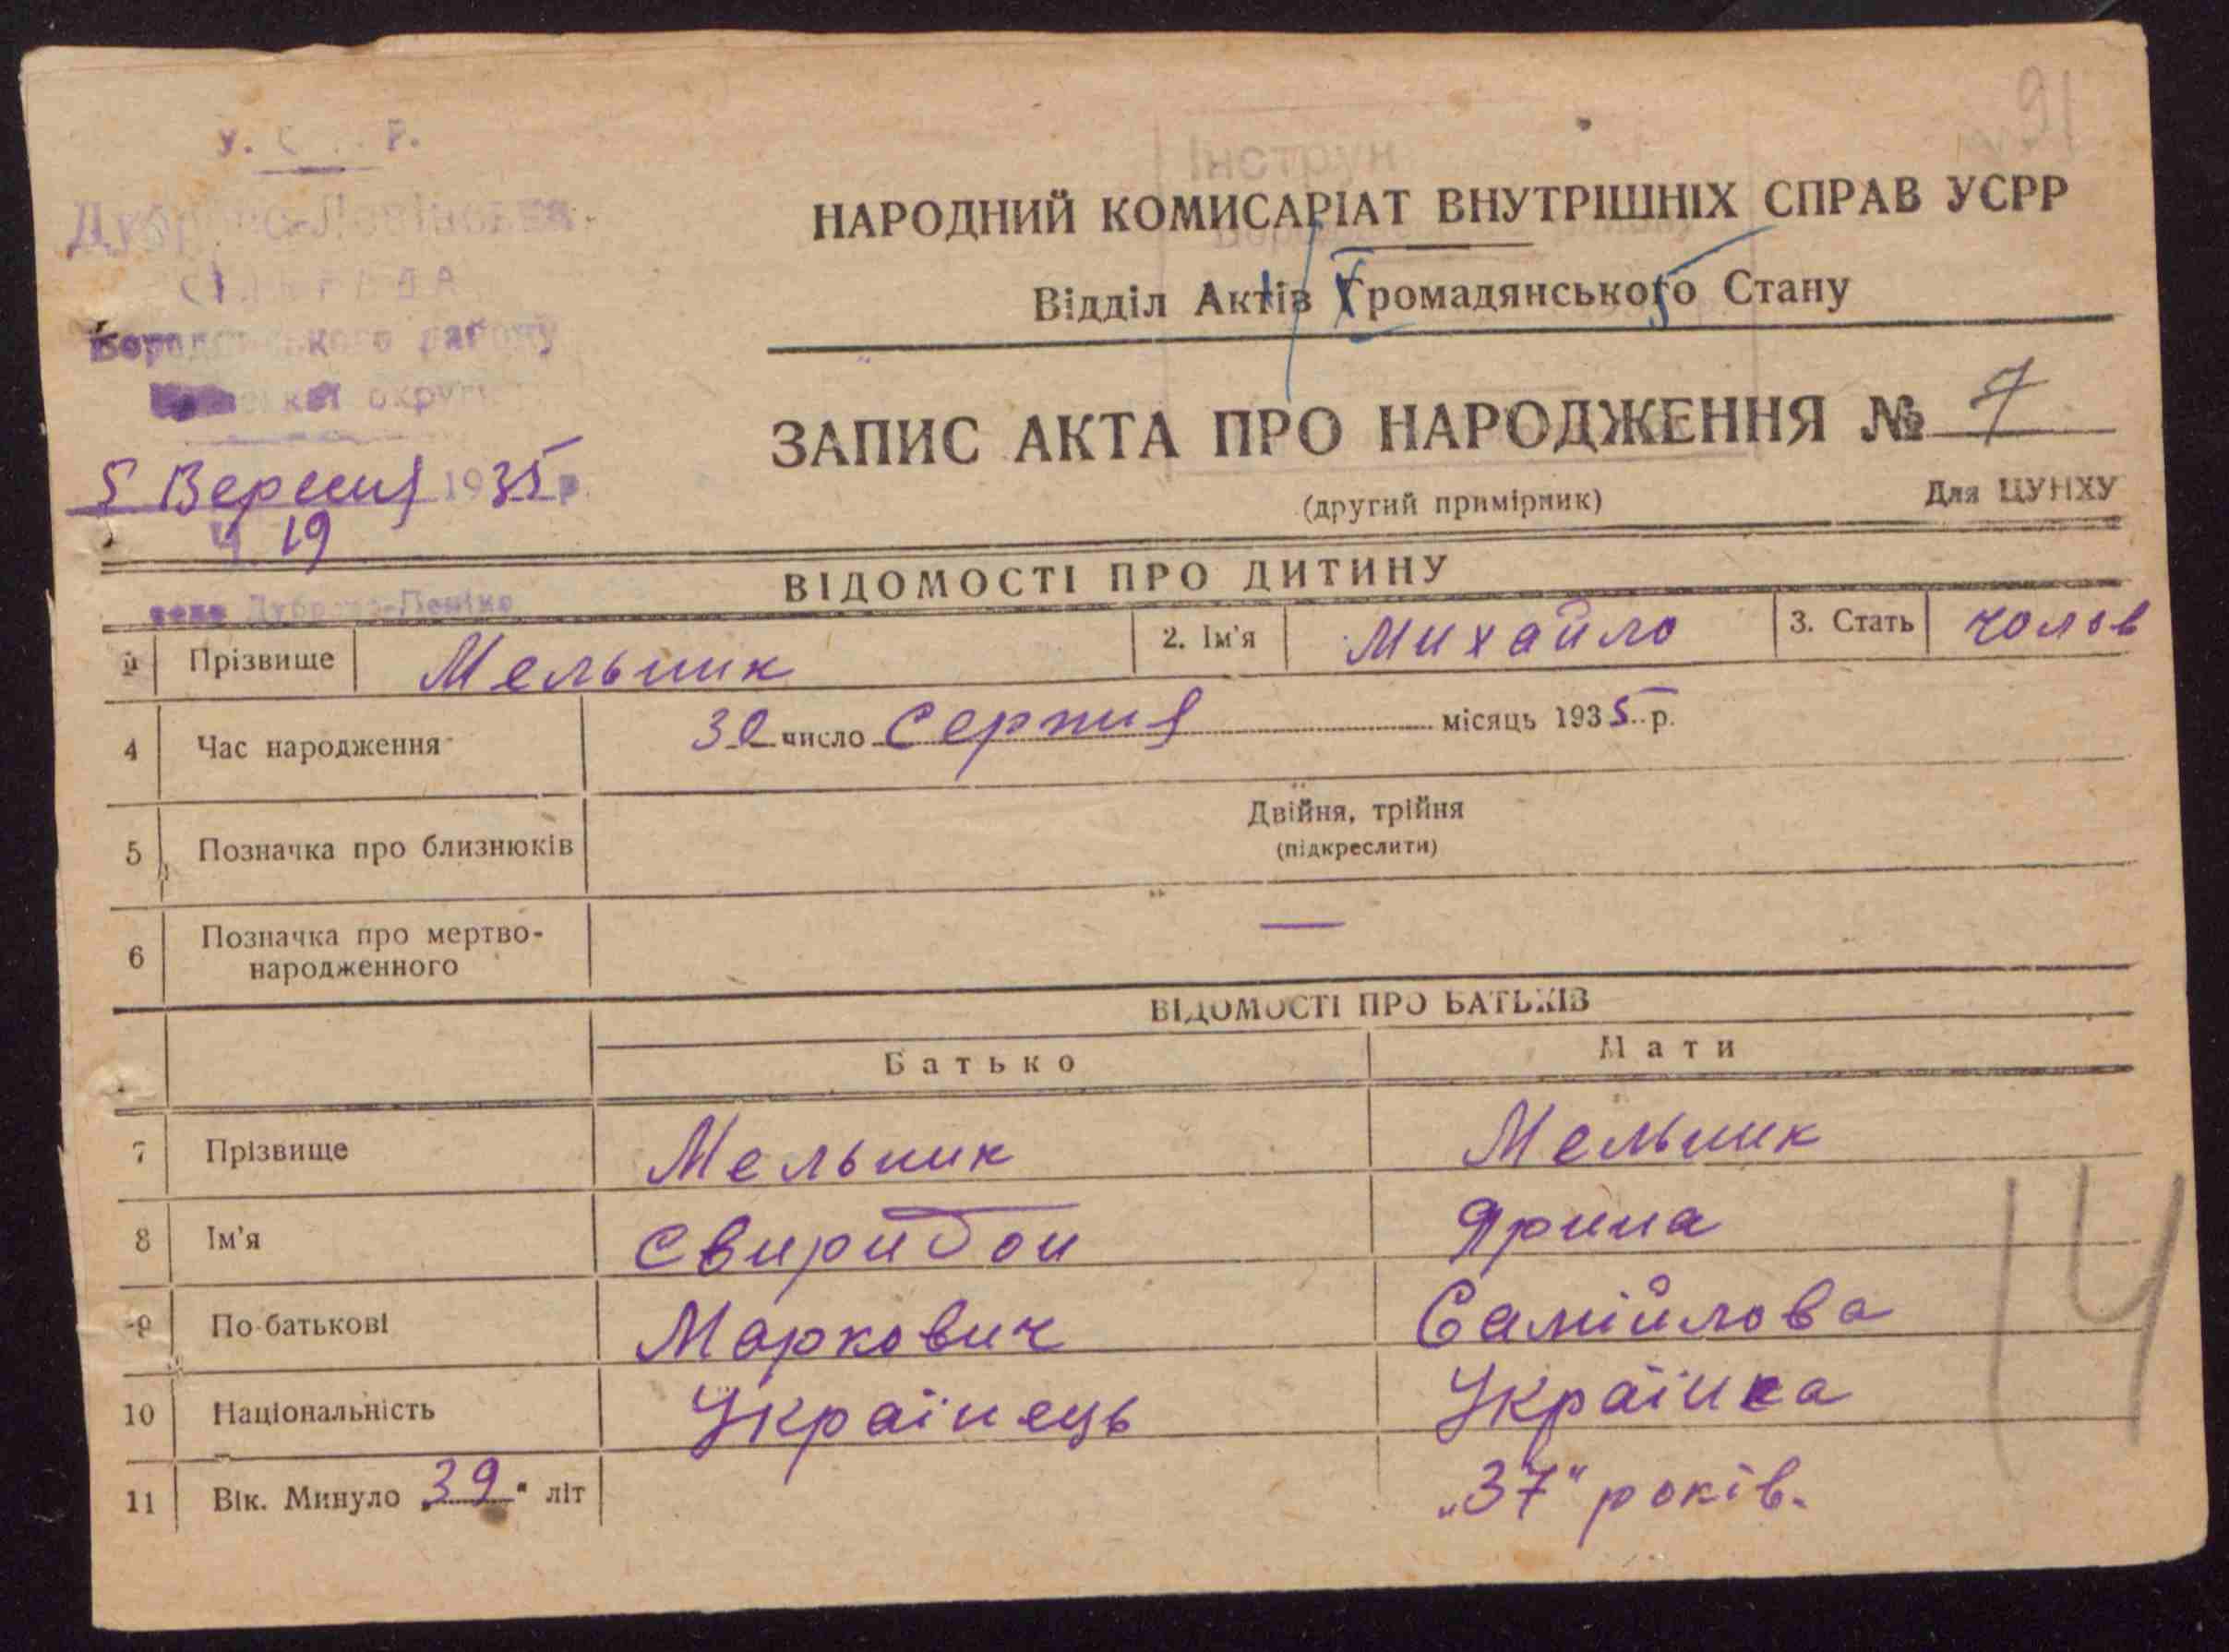 У. Р.
района
округи
5 Вересня 1935 р.
Ч. 19
село Дуброво-Леніно
91
НАРОДНИЙ КОМИСАРІАТ ВНУТРІШНІХ СПРАВ УСРР
Відділ Актів Громадянського Стану
ЗАПИС АКТА ПРО НАРОДЖЕННЯ № 7
(другий примірник) Для ЦУНХУ
ВІДОМОСТІ ПРО ДИТИНУ
1 Прізвище Мельник 2. Ім'я Михайло 3. Стать чолов
4 Час народження 30 число Серпня місяць 1935 р.
Двійня, трійня
5 Позначка про близнюків (підкреслити)
6 Позначка про мертво-
народженного —
ВІДОМОСТІ ПРО БАТЬКІВ
Батько Мати
7 Прізвище Мельник Мельник
8 Ім'я Свиридон Ярина
9 По-батькові Маркович Самійлова
10 Національність Українець Українка
11 Вік. Минуло „39" літ „37" років.
14